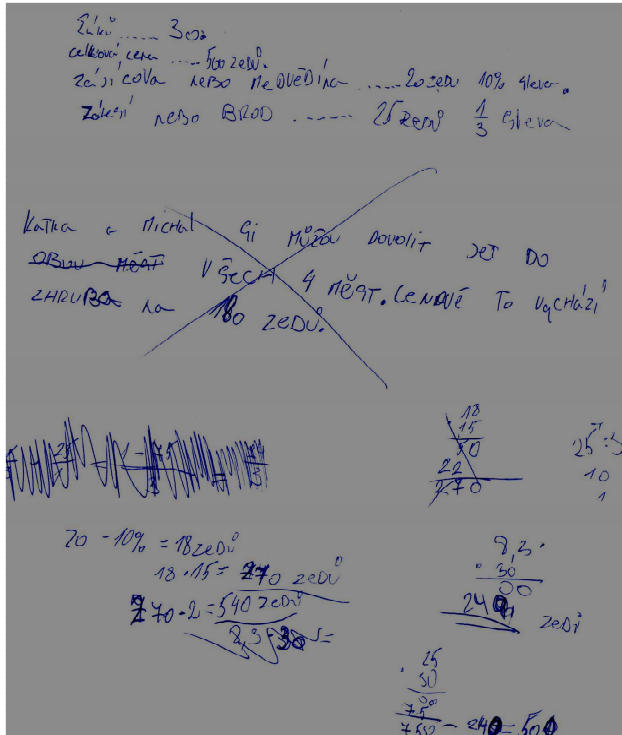 Žáků ..... 30
celková cena ..... 500 zedů.
nebo MEDVĚDÍNA ..... 20 zedů 10% sleva.
nebo BROD ...... 25 zedů 1/3 sleva
Katka a Michal si můžou dovolit jet do
OBOU MĚST všech 4 měst. Cenově to vychází
ZHRUBA na 180 zedů.
18
15
50
22
270
25:3
10
1
20 - 10% = 18 zedů
18 . 15 = 270 zedů
270 . 2 = 540 zedů
8,3 .
. 30
00
240 zedů
. 25
30
00
75
750 - 240 = 500